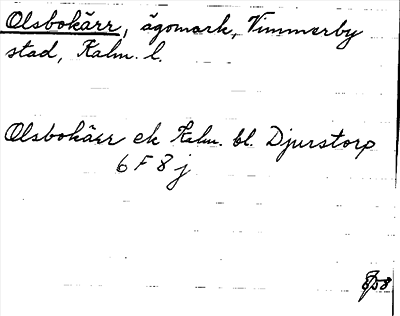 Olsbokärr, ägomark, Vimmerby
stad, Kalm. l.
Olsbokärr ek Kalm. bl. Djurstorp
6 F 8 j